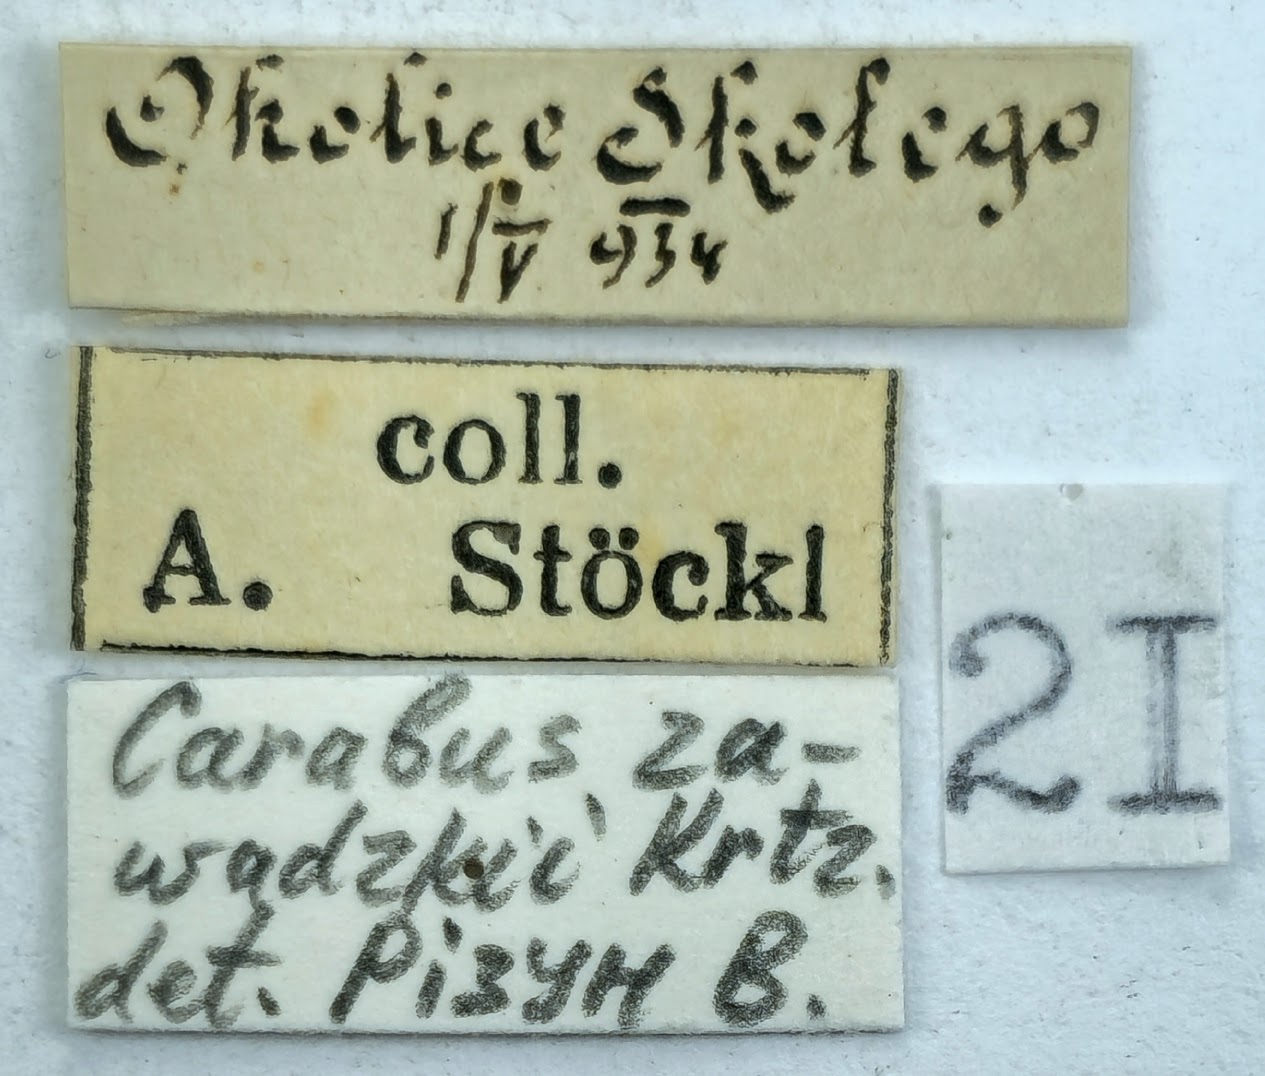 Okolice Skolego
1/V 934
coll.
A. Stöckl
Carabus za-
wadzkii Krtz.
det. Різун В.
21